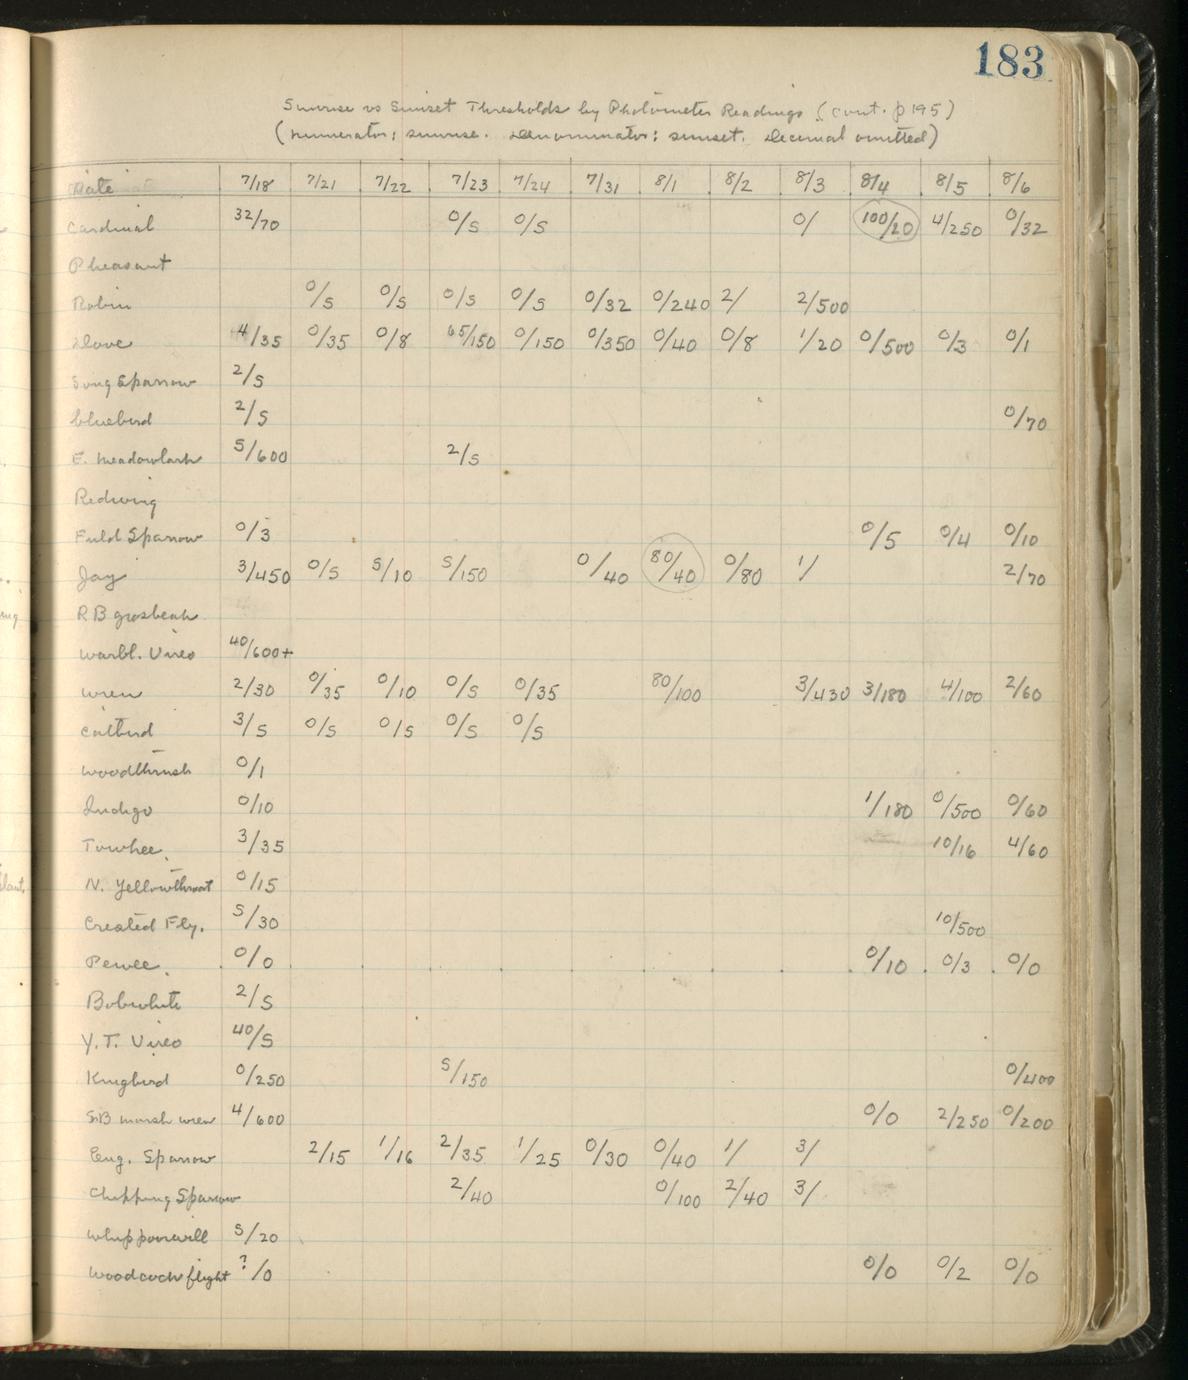 183
Sunrise vs Sunset Thresholds by Photometer Readings (cont. p 195)
(numerator: sunrise. Denominator: sunset. Decimal omitted)
Date 7/18 7/21 7/22 7/23 7/24 7/31 8/1 8/2 8/3 8/4 8/5 8/6
Cardinal 32/70 0/5 0/5 0/ 100/20 4/250 0/32
Pheasant
Robin 0/5 0/5 0/5 0/5 0/32 0/240 2/ 2/500
Dove 4/35 0/35 0/8 65/150 0/150 0/350 0/40 0/8 1/20 0/500 0/3 0/1
Song Sparrow 2/5
bluebird 2/5 0/70
E. Meadowlark 5/600 2/5
Redwing
Field Sparrow 0/3 0/5 0/4 0/10
Jay 3/450 0/5 5/10 5/150 0/40 80/40 0/80 1/ 2/70
RB grosbeak
Warbl. Vireo 40/600+
Wren 2/30 0/35 0/10 0/5 0/35 80/100 3/430 3/180 4/100 2/60
Catbird 3/5 0/5 0/5 0/5 0/5
Woodthrush 0/1
Indigo 0/10 1/180 0/500 0/60
Towhee 3/35 10/16 4/60
N. Yellowthroat 0/15
Crested Fly. 5/30 10/500
Pewee 0/0 0/10 0/3 0/0
Bobwhite 2/5
Y.T. Vireo 40/5
Kingbird 0/250 5/150 0/400
SB marsh wren 4/600 0/0 2/250 0/200
Eng. Sparrow 2/15 1/16 2/35 1/25 0/30 0/40 1/ 3/
Chipping Sparrow 2/40 0/100 2/40 3/
Whippoorwill 5/20
Woodcock flight ?/0 0/0 0/2 0/0